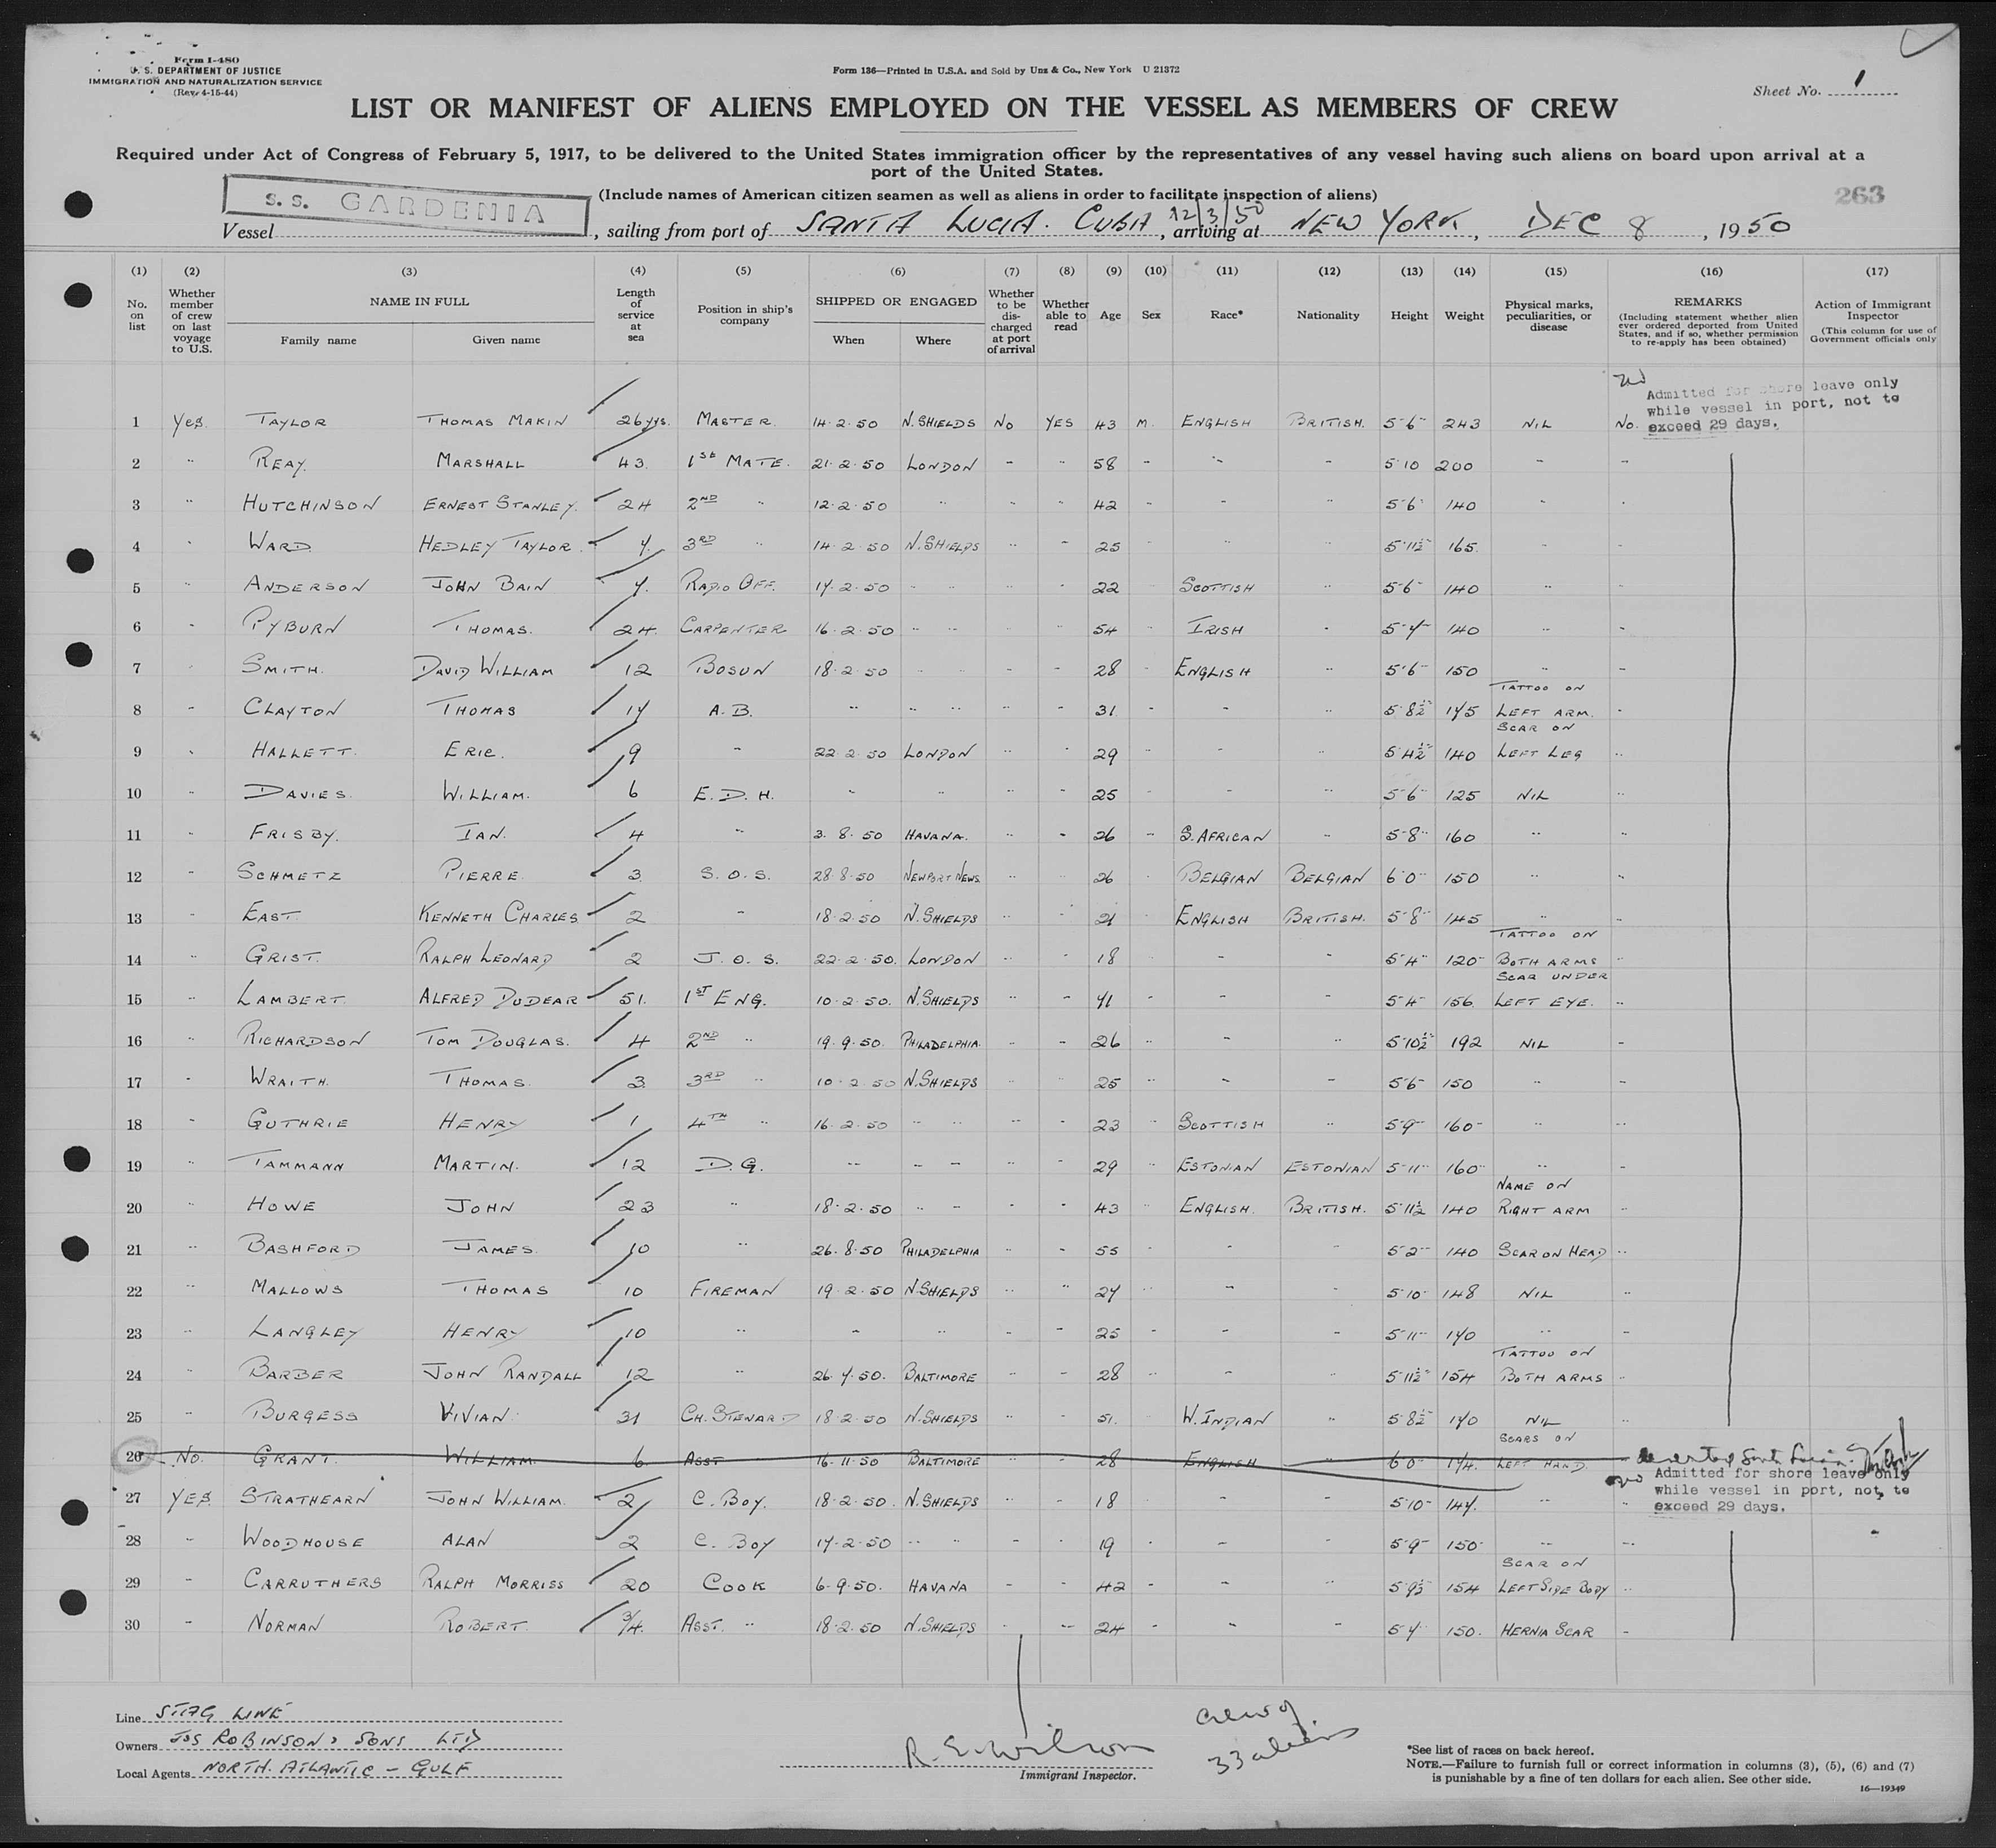 Form I-480
U. S. DEPARTMENT OF JUSTICE
IMMIGRATION AND NATURALIZATION SERVICE
(Rev. 4-15-44)
Form 136—Printed in U.S.A. and Sold by Unz & Co., New York U 21372
Sheet No. 1
LIST OR MANIFEST OF ALIENS EMPLOYED ON THE VESSEL AS MEMBERS OF CREW
Required under Act of Congress of February 5, 1917, to be delivered to the United States immigration officer by the representatives of any vessel having such aliens on board upon arrival at a
port of the United States.
(Include names of American citizen seamen as well as aliens in order to facilitate inspection of aliens)
263
Vessel S. S. GARDENIA, sailing from port of SANTA LUCIA. CUBA 12/3/50, arriving at NEW YORK, DEC 8, 1950
(1) (2) (3) (4) (5) (6) (7) (8) (9) (10) (11) (12) (13) (14) (15) (16) (17)
No. on list
Whether member of crew on last voyage to U.S.
NAME IN FULL
Family name Given name
Length of service at sea
Position in ship's company
SHIPPED OR ENGAGED
When Where
Whether to be discharged at port of arrival
Whether able to read
Age
Sex
Race*
Nationality
Height
Weight
Physical marks, peculiarities, or disease
REMARKS
(Including statement whether alien ever ordered deported from United States, and if so, whether permission to re-apply has been obtained)
Action of Immigrant Inspector
(This column for use of Government officials only
Admitted for shore leave only
while vessel in port, not to
exceed 29 days.
1 Yes. TAYLOR THOMAS MAKIN 26yrs. MASTER. 14-2-50 N. SHIELDS No YES 43 M. ENGLISH BRITISH. 5-6 243 NIL No.
2 " REAY. MARSHALL 43. 1ST MATE. 21-2-50 LONDON - " 58 - " - 5-10 200 - -
3 " HUTCHINSON ERNEST STANLEY. 24 2ND " 12-2-50 " " " 42 - - " 5-6 140 "
4 " WARD. HEDLEY TAYLOR. 7. 3RD " 14-2-50 N. SHIELDS " - 25 " " 5-11½ 165. - -
5 " ANDERSON JOHN BAIN 7. RADIO OFF. 17-2-50 " " " - 22 SCOTTISH " 5-6 140 " -
6 " PYBURN THOMAS. 24. CARPENTER 16-2-50 " " " " 54 - IRISH - 5-7 140 " -
7 " SMITH. DAVID WILLIAM 12 BOSUN 18-2-50 - - - - 28 - ENGLISH " 5-6 150 " -
8 " CLAYTON THOMAS 17 A.B. " " " " - 31 - - " 5-8½ 175 TATTOO ON LEFT ARM. -
9 " HALLETT. ERIC. 9 " 22-2-50 LONDON " - 29 " - " 5-4½ 140 SCAR ON LEFT LEG "
10 " DAVIES. WILLIAM. 6 E.D.H. " " " " 25 - - " 5-6 125 NIL "
11 " FRISBY. IAN. 4 " 3-8-50 HAVANA. " - 26 " S. AFRICAN " 5-8 160 " "
12 " SCHMETZ PIERRE. 3 S.O.S. 28-8-50 NEWPORT NEWS. " " 26 BELGIAN BELGIAN 6-0 150 " -
13 " EAST. KENNETH CHARLES 2 - 18-2-50 N. SHIELDS " " 21 - ENGLISH BRITISH. 5-8 145 " -
14 " GRIST. RALPH LEONARD 2 J.O.S. 22-2-50. LONDON " - 18 - - 5-4 120 TATTOO ON BOTH ARMS -
15 " LAMBERT. ALFRED DUDEAR 51. 1ST ENG. 10-2-50. N. SHIELDS " - 71 - - - 5-4 156. SCAR UNDER LEFT EYE. "
16 " RICHARDSON TOM DOUGLAS. 4 2ND " 19-9-50. PHILADELPHIA. - - 26 " - " 5-10½ 192 NIL -
17 - WRAITH. THOMAS. 3 3RD " 10-2-50 N. SHIELDS - - 25 " - - 5-6 150 " -
18 - GUTHRIE HENRY 1 4TH " 16-2-50 " " " - 23 - SCOTTISH " 5-9 160 " -
19 " TAMMANN MARTIN. 12 D.G. " " - " - 29 " ESTONIAN ESTONIAN 5-11 160 " -
20 " HOWE JOHN 23 " 18-2-50 " - - - 43 " ENGLISH. BRITISH. 5-11½ 140 NAME ON RIGHT ARM "
21 " BASHFORD JAMES. 10 " 26-8-50 PHILADELPHIA " - 55 - - " 5-2 140 SCAR ON HEAD "
22 " MALLOWS THOMAS 10 FIREMAN 19-2-50 N. SHIELDS " " 27 - - " 5-10 148 NIL "
23 " LANGLEY HENRY 10 " - " - - 25 - - - 5-11 170 " -
24 " BARBER JOHN RANDALL 12 " 26-7-50. BALTIMORE " - 28 - - " 5-11½ 154 TATTOO ON BOTH ARMS -
25 " BURGESS VIVIAN. 31 CH. STEWARD 18-2-50 N. SHIELDS " - 51. - W. INDIAN " 5-8½ 170 NIL "
26 No. GRANT. WILLIAM. 6. ASST 16-11-50 BALTIMORE " - 28 ENGLISH 6-0 174. SCARS ON LEFT HAND.
Admitted for shore leave only
while vessel in port, not to
exceed 29 days.
27 YES. STRATHEARN JOHN WILLIAM. 2 C. BOY. 18-2-50. N. SHIELDS " - 18 - " " 5-10 147. " "
28 " WOODHOUSE ALAN 2 C. BOY 17-2-50 " " - " 19 - - - 5-9 150 " "
29 " CARRUTHERS RALPH MORRISS 20 COOK 6-9-50. HAVANA - - 42 - - " 5-9½ 154 SCAR ON LEFT SIDE BODY "
30 " NORMAN ROBERT. 3/4. ASST. " 18-2-50 N. SHIELDS - " 24 - - - 5-7 150. HERNIA SCAR -
Line STAG LINE
Owners JOS ROBINSON & SONS LTD
Local Agents NORTH. ATLANTIC - GULF
R. E. Wilson
Immigrant Inspector.
crew of
33 aliens
*See list of races on back hereof.
NOTE.—Failure to furnish full or correct information in columns (3), (5), (6) and (7)
is punishable by a fine of ten dollars for each alien. See other side.
16—19349